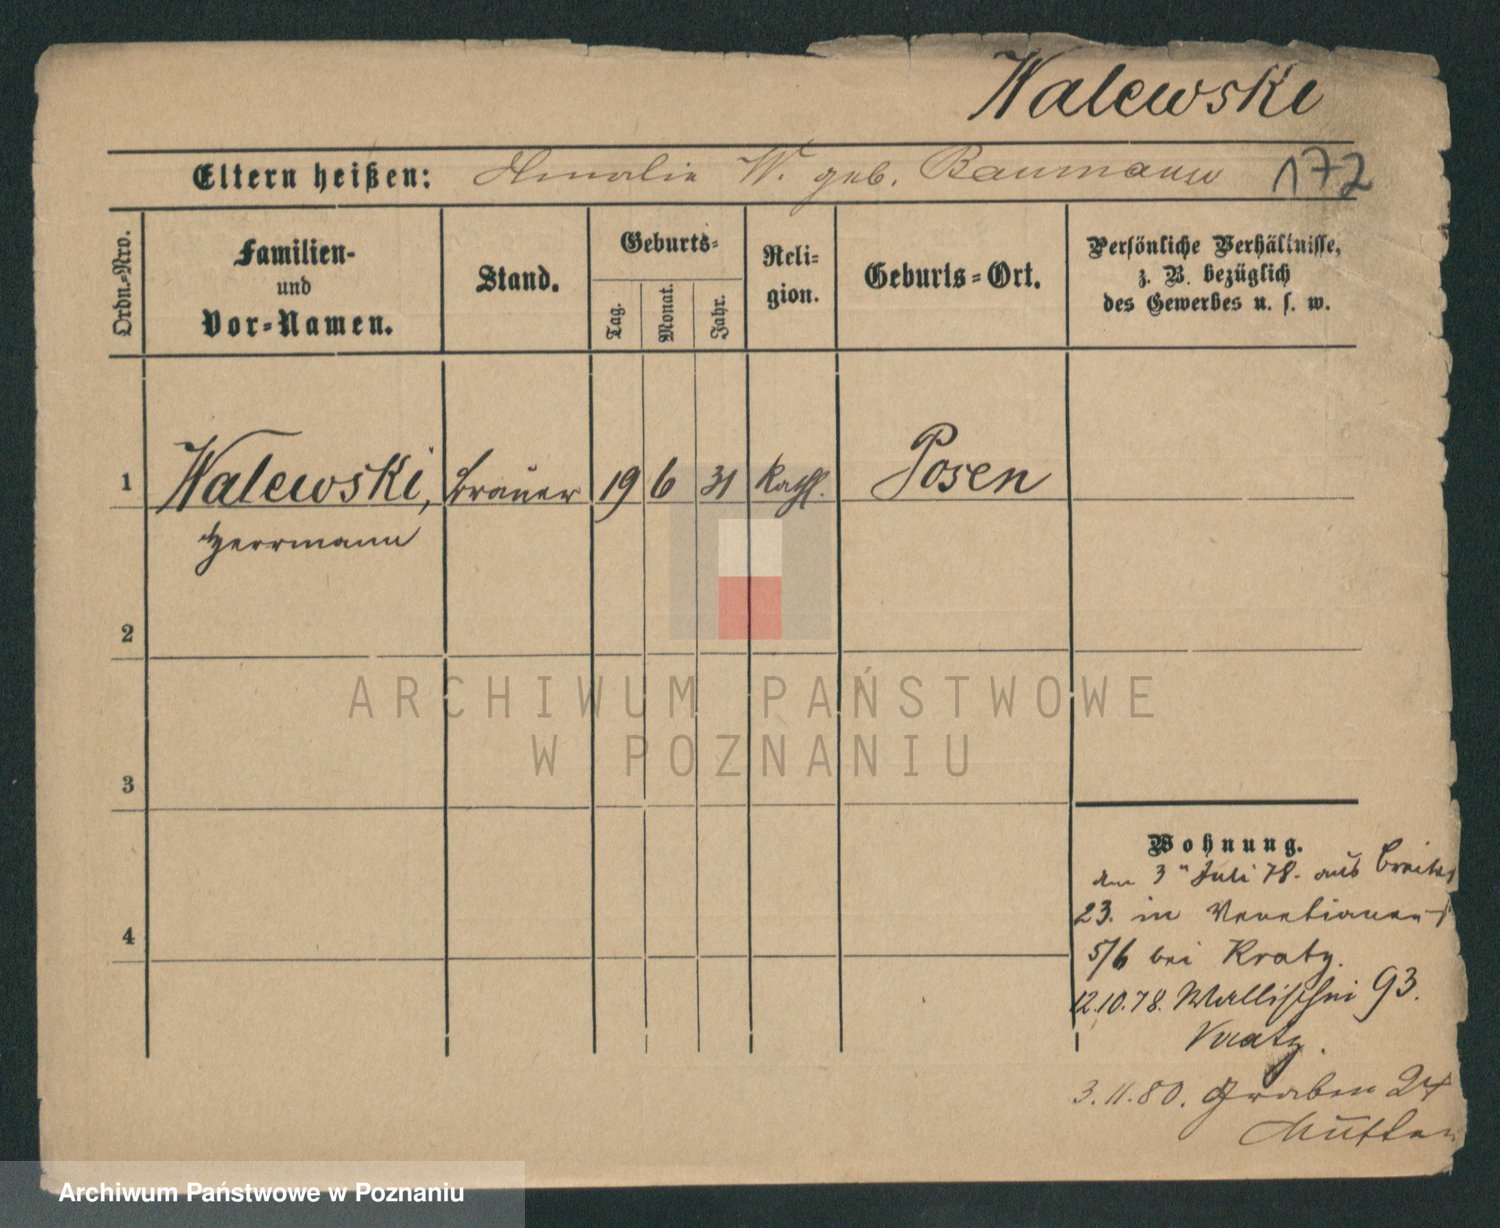 Walewski
Eltern heißen: Amalie W. geb. Baumann 172
Ordn.-Nro.
Familien-
und
Vor-Namen.
Stand.
Geburts-
Tag.
Monat.
Jahr.
Reli-
gion.
Geburts-Ort.
Persönliche Verhältnisse,
z. B. bezüglich
des Gewerbes u. s. w.
1 Walewski, Brauer 19 6 31 Kath. Posen
Herrmann
2
3
4
Wohnung.
den 3 Juli 78. aus Breitestr
23. in Venetianerstr
5/6 bei Kratz.
12.10.78. Wallischei 93.
Kratz.
3.11.80. Graben 24
ARCHIWUM PAŃSTWOWE
W POZNANIU
Archiwum Państwowe w Poznaniu